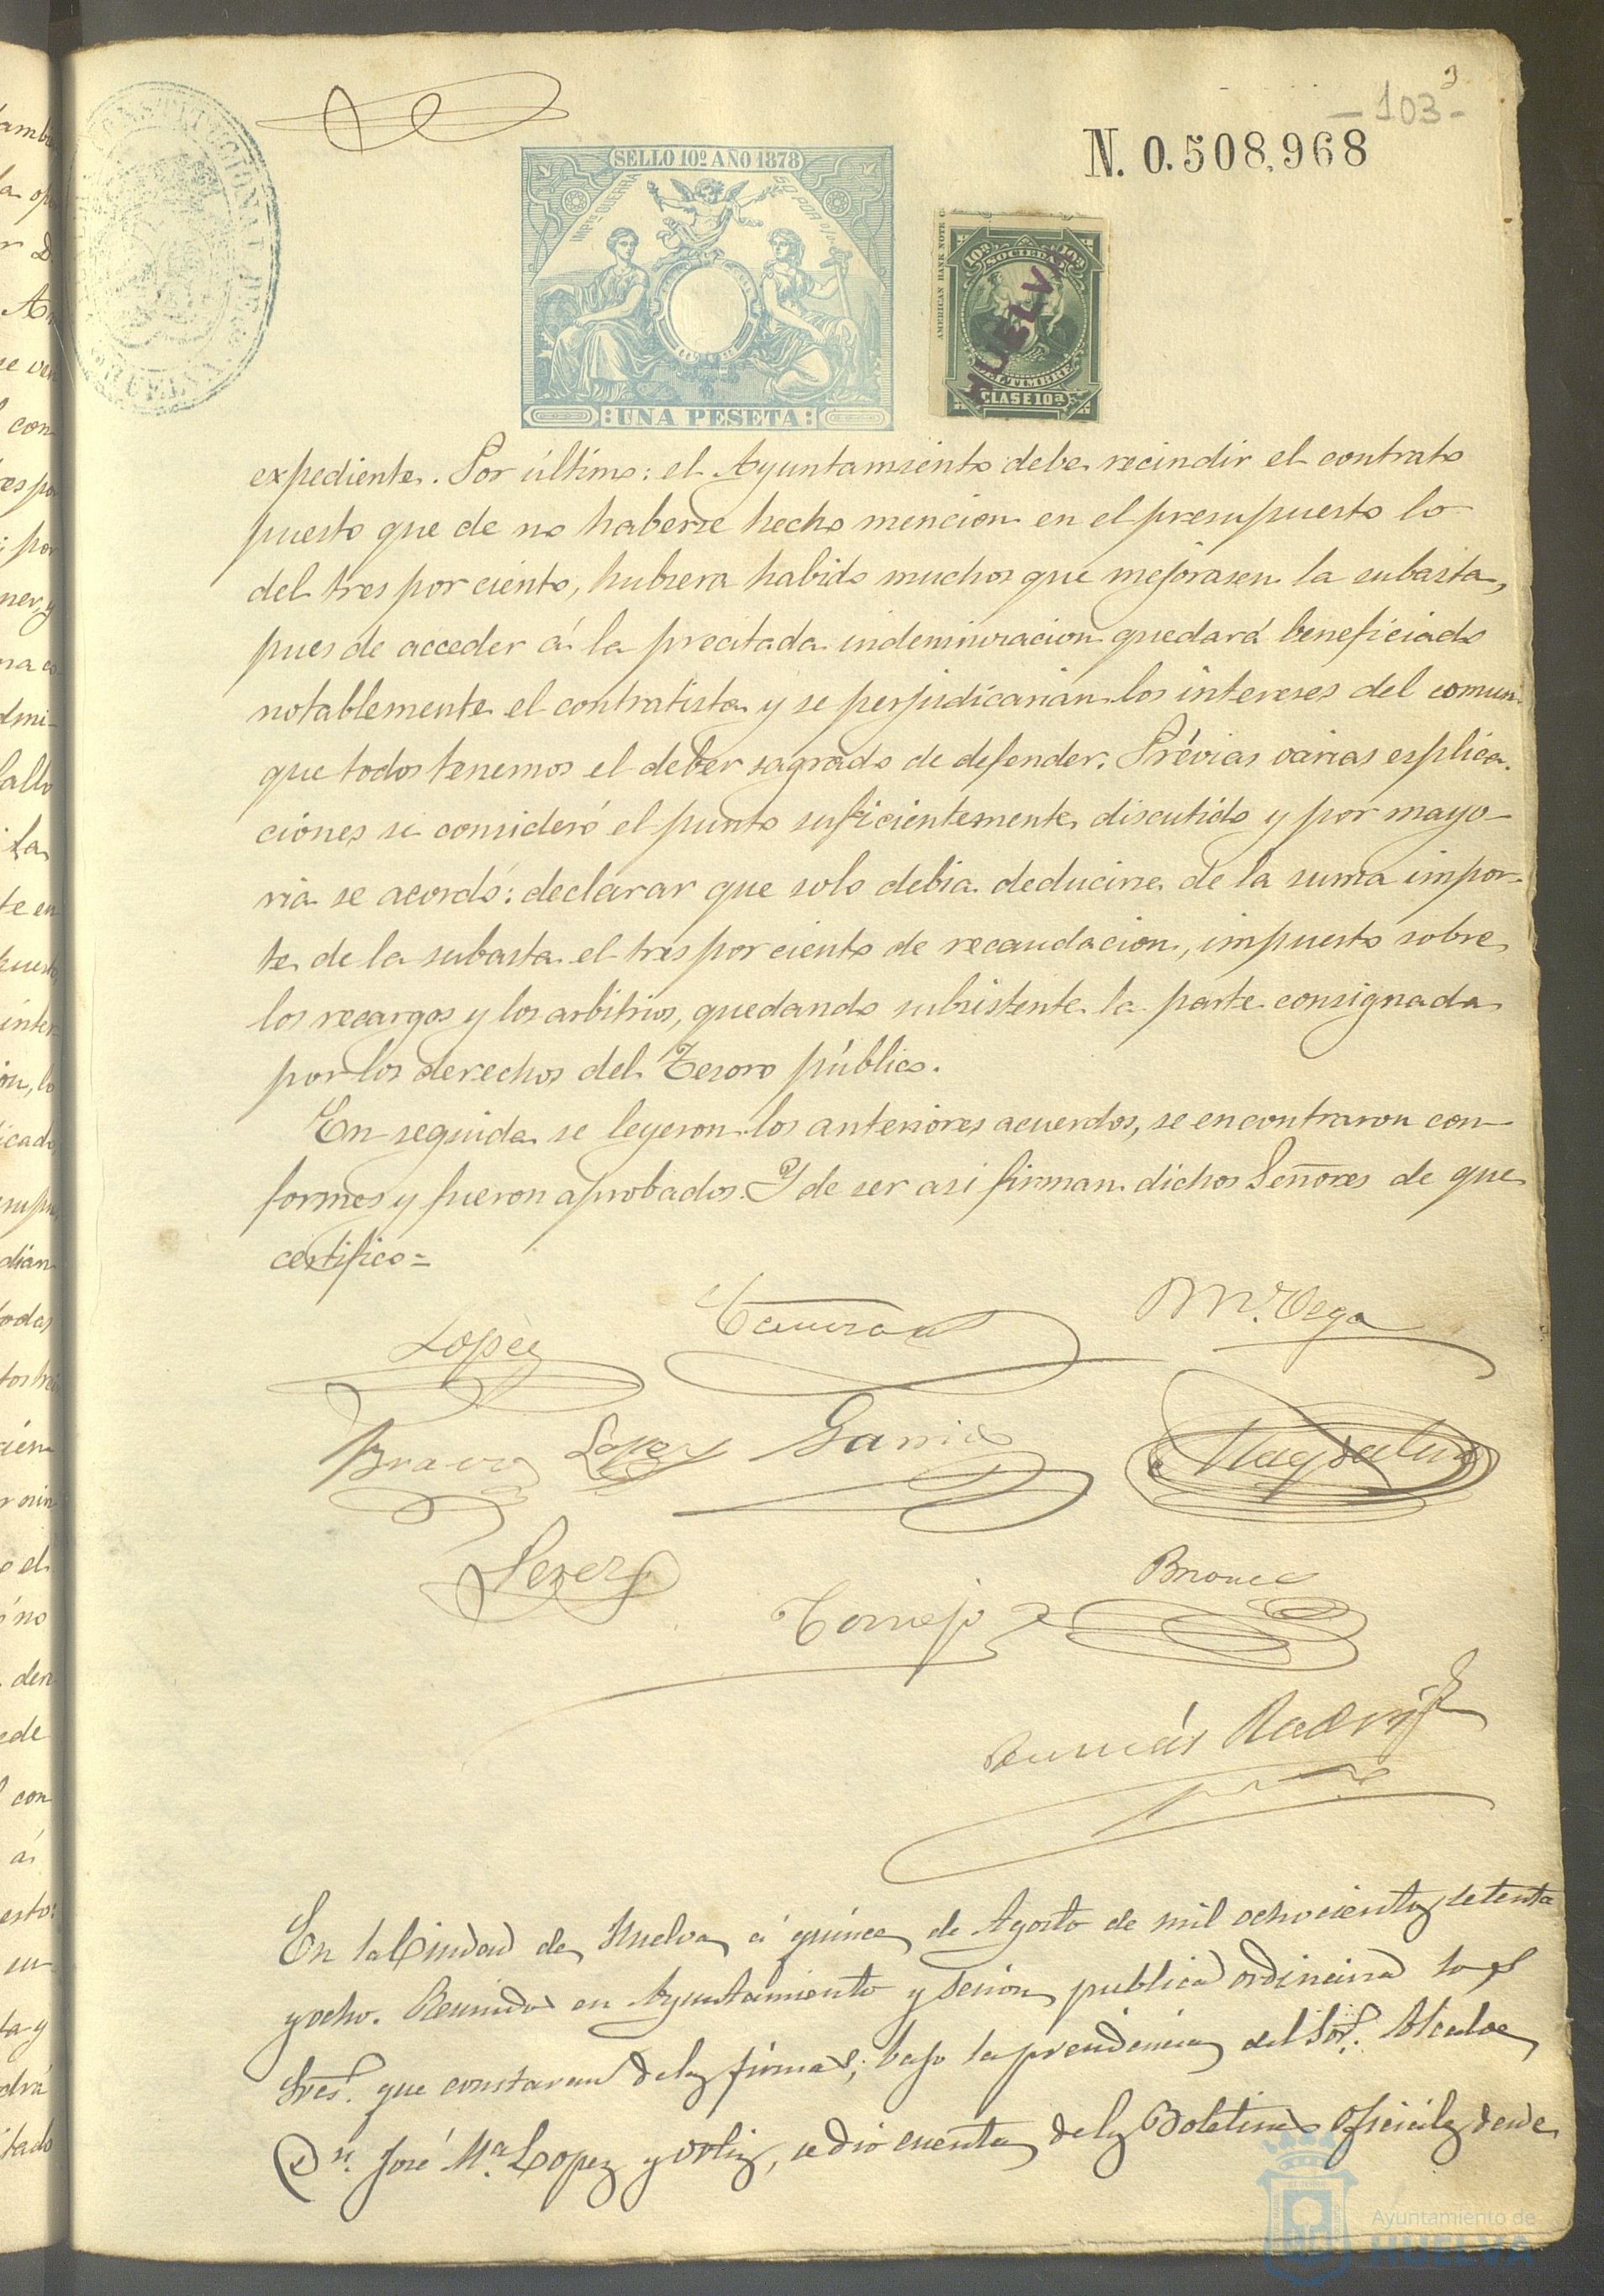 3
- 103 -
N. 0.508,968
SELLO 10º AÑO 1878
IMPTO GUERRA
50 POR %
UNA PESETA
AMERICAN BANK NOTE
10ª 10ª
SOCIEDAD
DEL TIMBRE
CLASE 10ª
HUELVA
CONSTITUCIONAL DE
HUELVA
expediente. Por último: el Ayuntamiento debe recindir el contrato
puesto que de no haberse hecho mencion en el presupuesto lo
del tres por ciento, hubiera habido muchos que mejorasen la subasta,
pues de acceder á la precitada indemnizacion quedará beneficiado
notablemente el contratista y se perjudicarian los intereses del comun
que todos tenemos el deber sagrado de defender. Prévias várias esplica-
ciones se consideró el punto suficientemente discutido y por mayo-
ria se acordó: declarar que solo debia deducirse de la suma impor-
te de la subasta el tres por ciento de recaudacion, impuesto sobre
los recargos y los arbitrios, quedando subsistente la parte consignada
por los derechos del Tesoro público.
En seguida se leyeron los anteriores acuerdos, se encontraron con-
formes y fueron aprobados. Y de ser asi firman dichos Señores de que
certifico=
Lopez
Mz. Vega
Bravo Lopez Garrido
Perez
Tornejo
En la Ciudad de Huelva á quince de Agosto de mil ochocientos setenta
y ocho. Reunidos en Ayuntamiento y sesion publica ordinaria los
Sres. que constaran de las firmas; bajo la presidencia del Sor. Alcalde
Dn. José Ma. Lopez y Ortiz, se dió cuenta de los Boletines oficiales desde
Ayuntamiento de
HUELVA